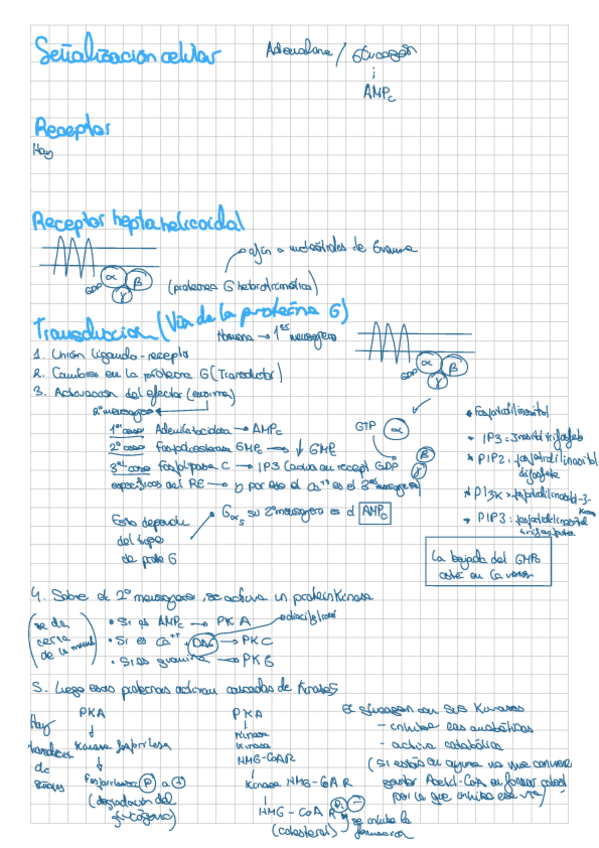 Señalización celular
Adrenalina / Glucagón
AMPc
Receptor
Hay
Receptor heptahelicoidal
afín a nucleótidos de Guanina
α β γ
GDP
(proteínas G heterotriméricas)
Transducción (Vía de la proteína G)
Hormona → 1er mensajero
1. Unión ligando-receptor
2. Cambios en la proteína G (Transductor)
3. Activación del efector (enzima)
2º mensajero
α β γ
GDP
1er caso Adenilatociclasa → AMPc
2º caso Fosfodiesterasa GMPc → ↓ GMPc
3er caso Fosfolipasa C → IP3 (actúa en recept
específicos del RE → y por eso el Ca++ es el 3er mensajero)
GTP α
GDP β γ
* Fosfatidilinositol
* IP3: Inositol trifosfato
* PIP2: fosfatidilinositol
difosfato
* PI3K: fosfatidilinositol-3-
* PIP3: fosfatidilinositol
trifosfato
Esto depende
del tipo
de prote G
Gαs su 2º mensajero es el AMPc
La bajada del GMPc
está en la visión
4. Sobre el 2º mensajero, se activa un proteín kinasa
(se da
cerca
de la memb)
• Si es AMPc → PKA
• Si es Ca++ + DAG → PKC
diacilglicerol
• Si es guanina → PKG
5. Luego esas proteínas activan cascadas de kinasas
Hay
de
señales
PKA
Kinasa fosforilasa
Fosforilasa P a
(degradación del
glucógeno)
PKA
Kinasa
kinasa
HMG-CoAR
Kinasa HMG-CoA R
HMG-CoA R P −
(colesterol)
se inhibe la
El glucagón con sus kinasas
- inhibe las anabólicas
- activa catabólica
(Si estás en ayuna no me conviene
gastar Acetil-CoA en formar colest
por lo que inhibe esa vía)